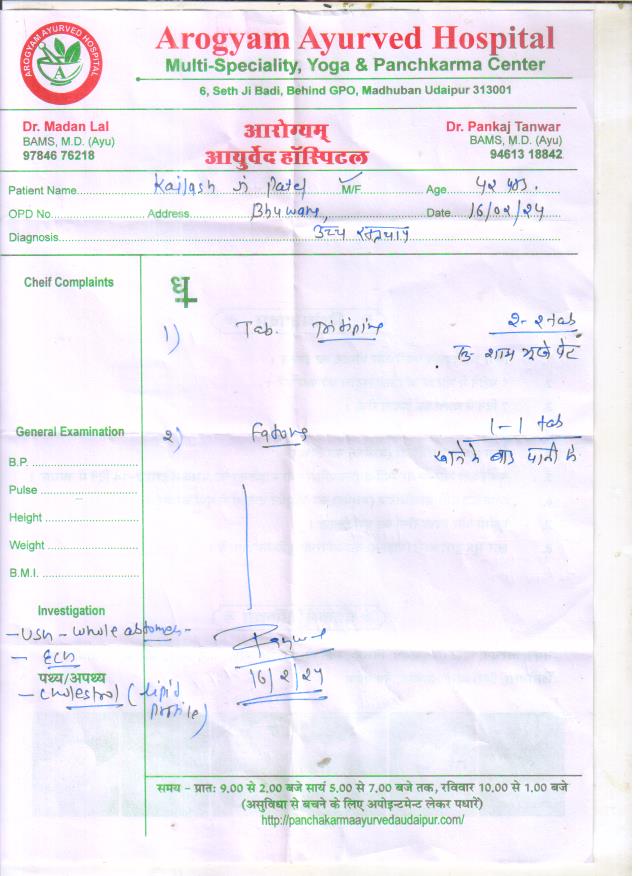 AROGYAM AYURVED HOSPITAL
Arogyam Ayurved Hospital
Multi-Speciality, Yoga & Panchkarma Center
6, Seth Ji Badi, Behind GPO, Madhuban Udaipur 313001
Dr. Madan Lal
BAMS, M.D. (Ayu)
97846 76218
आरोग्यम्
आयुर्वेद हॉस्पिटल
Dr. Pankaj Tanwar
BAMS, M.D. (Ayu)
94613 18842
Patient Name Kailash Ji Patel M/F Age 52
OPD No. Address Bhuwana, Date 16/02/24
Diagnosis उच्च रक्तचाप
Cheif Complaints
1) Tab. 2-2 tab
शाम भूखे पेट
General Examination
2) 1-1 tab
खाने के बाद पानी से
B.P.
Pulse
Height
Weight
B.M.I.
Investigation
- USG - whole abdomen -
- ECG
पथ्य/अपथ्य
- Cholestrol (lipid profile)
16/2/24
समय - प्रातः 9.00 से 2.00 बजे सायं 5.00 से 7.00 बजे तक, रविवार 10.00 से 1.00 बजे
(असुविधा से बचने के लिए अपोइन्टमेन्ट लेकर पधारें)
http://panchakarmaayurvedaudaipur.com/